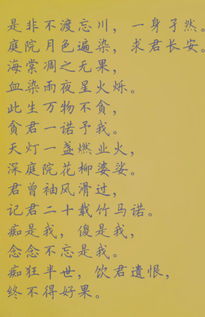 是非不渡忘川，一身孑然。
庭院月色遍染，求君长安。
海棠凋之无果，
血染雨夜星火烁。
此生万物不贪，
贪君一诺予我。
天灯一盏燃业火，
深庭院花柳婆娑。
君曾袖风滑过，
记君二十载竹马诺。
痴是我，傻是我，
念念不忘是我。
痴狂半世，饮君遗恨，
终不得好果。